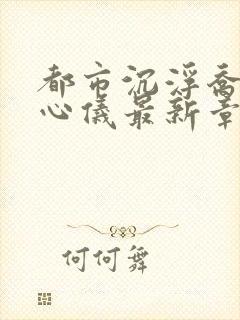 都市沉浮乔
心仪最新章
何何舞